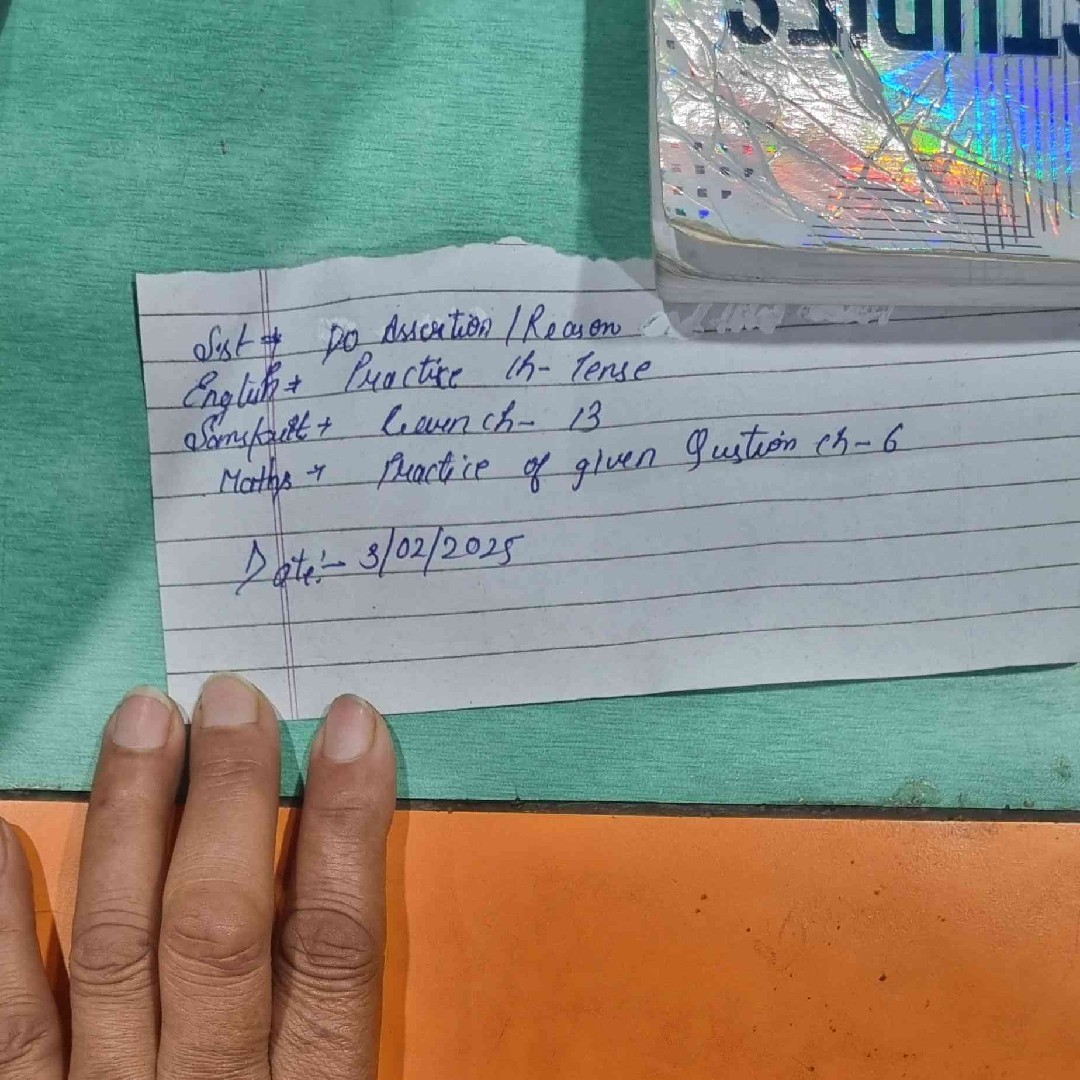 STUDIES
S.st → Do Assertion / Reason
English → Practice Ch- Tense
Sanskrit → Learn ch- 13
Maths → Practice of given Qustion ch- 6
Date:- 3/02/2025